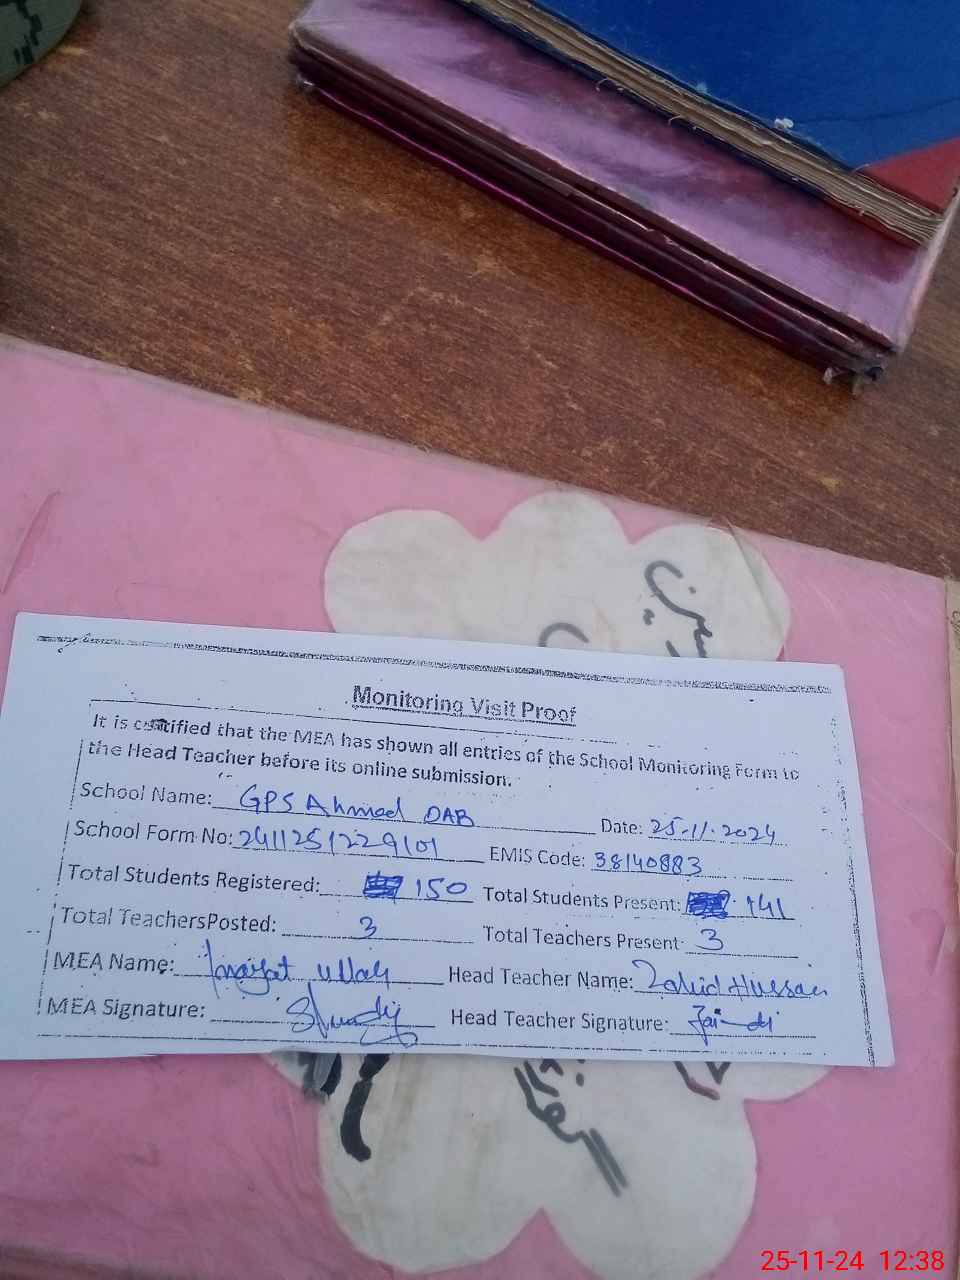 Monitoring Visit Proof
It is certified that the MEA has shown all entries of the School Monitoring Form to
the Head Teacher before its online submission.
School Name: GPS Ahmad DAB Date: 25-11-2024
School Form No: 2411251229101 EMIS Code: 38140883
Total Students Registered: 150 Total Students Present: 141
Total TeachersPosted: 3 Total Teachers Present: 3
MEA Name: Inayat Ullah Head Teacher Name: Zahid Hussain
MEA Signature: Head Teacher Signature:
25-11-24 12:38